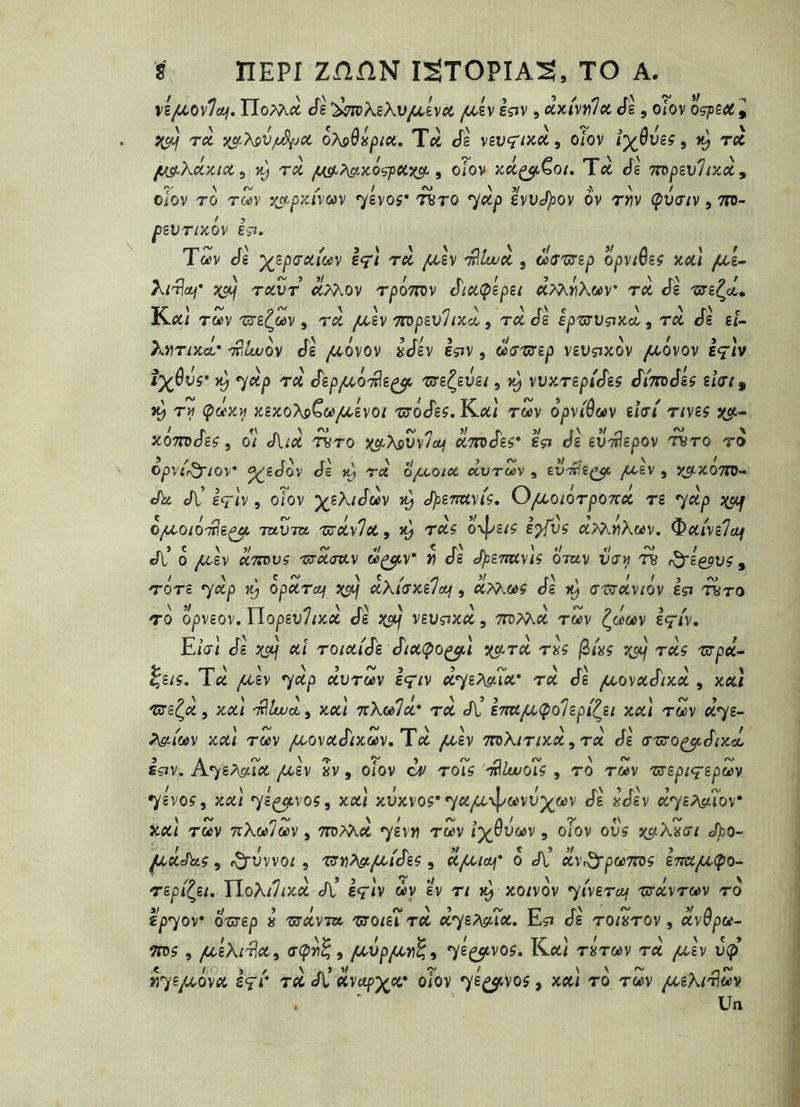 8 ΠΕΡΙ ΖΩΩΝ ΙΣΤΟΡΙΑΣ, ΤΟ Α.
νέμονται. Πολλὰ δὲ ἀπολελυμένα μέν ἐστιν, ἀκίνητα δὲ, οἷον ὄστρεα,
καὶ τὰ καλούμενα ὁλοθούρια. Τὰ δὲ νευστικὰ, οἷον ἰχθύες, καὶ τὰ
μαλάκια, καὶ τὰ μαλακόστρακα, οἷον κάραβοι. Τὰ δὲ πορευτικὰ,
οἷον τὸ τῶν καρκίνων γένος· τοῦτο γὰρ ἔνυδρον ὂν τὴν φύσιν, πο-
ρευτικόν ἐστι.
Τῶν δὲ χερσαίων ἐστὶ τὰ μὲν πτηνὰ, ὥσπερ ὄρνιθες καὶ μέ-
λιτται· καὶ ταῦτ' ἄλλον τρόπον διαφέρει ἀλλήλων· τὰ δὲ πεζά.
Καὶ τῶν πεζῶν, τὰ μὲν πορευτικὰ, τὰ δὲ ἑρπυστικὰ, τὰ δὲ εἰ-
λητικά· πτηνὸν δὲ μόνον οὐδέν ἐστιν, ὥσπερ νευστικὸν μόνον ἐστὶν
ἰχθύς· καὶ γὰρ τὰ δερμόπτερα πεζεύει, καὶ νυκτερίδες δίποδές εἰσι,
καὶ τῇ φώκῃ κεκολοβωμένοι πόδες. Καὶ τῶν ὀρνίθων εἰσί τινες κα-
κόποδες, οἳ διὰ τοῦτο καλοῦνται ἄποδες· ἔστι δὲ εὔπτερον τοῦτο τὸ
ὀρνίθιον· σχεδὸν δὲ καὶ τὰ ὅμοια αὐτῶν, εὔπτερα μὲν, κακόπο-
δα δ' ἐστὶν, οἷον χελιδὼν καὶ δρεπανίς. Ὁμοιότροπά τε γὰρ καὶ
ὁμοιόπτερα ταῦτα πάντα, καὶ τὰς ὄψεις ἐγγὺς ἀλλήλων. Φαίνεται
δ' ὁ μὲν ἄπους πᾶσαν ὥραν· ἡ δὲ δρεπανὶς ὅταν ὕσῃ τοῦ θέρους,
τότε γὰρ καὶ ὁρᾶται καὶ ἁλίσκεται, ἄλλως δὲ καὶ σπάνιόν ἐστι τοῦτο
τὸ ὄρνεον. Πορευτικὰ δὲ καὶ νευστικὰ, πολλὰ τῶν ζώων ἐστίν.
Εἰσὶ δὲ καὶ αἱ τοιαίδε διαφοραὶ κατὰ τοὺς βίους καὶ τὰς πρά-
ξεις. Τὰ μὲν γὰρ αὐτῶν ἐστιν ἀγελαῖα· τὰ δὲ μοναδικὰ, καὶ
πεζὰ, καὶ πτηνὰ, καὶ πλωτά· τὰ δ' ἐπαμφοτερίζει καὶ τῶν ἀγε-
λαίων καὶ τῶν μοναδικῶν. Τὰ μὲν πολιτικὰ, τὰ δὲ σποραδικά
ἐστιν. Ἀγελαῖα μὲν οὖν, οἷον ἐν τοῖς πτηνοῖς, τὸ τῶν περιστερῶν
γένος, καὶ γέρανος, καὶ κύκνος· γαμψωνύχων δὲ οὐδὲν ἀγελαῖον·
καὶ τῶν πλωτῶν, πολλὰ γένη τῶν ἰχθύων, οἷον οὓς καλοῦσι δρο-
μάδας, θύννοι, πηλαμίδες, ἀμίαι· ὁ δ' ἄνθρωπος ἐπαμφο-
τερίζει. Πολιτικὰ δ' ἐστὶν ὧν ἕν τι καὶ κοινὸν γίνεται πάντων τὸ
ἔργον· ὅπερ οὐ πάντα ποιεῖ τὰ ἀγελαῖα. Ἔστι δὲ τοιοῦτον, ἄνθρω-
πος, μέλιττα, σφὴξ, μύρμηξ, γέρανος. Καὶ τούτων τὰ μὲν ὑφ'
ἡγεμόνα ἐστί· τὰ δ' ἄναρχα· οἷον γέρανος, καὶ τὸ τῶν μελιττῶν
Un